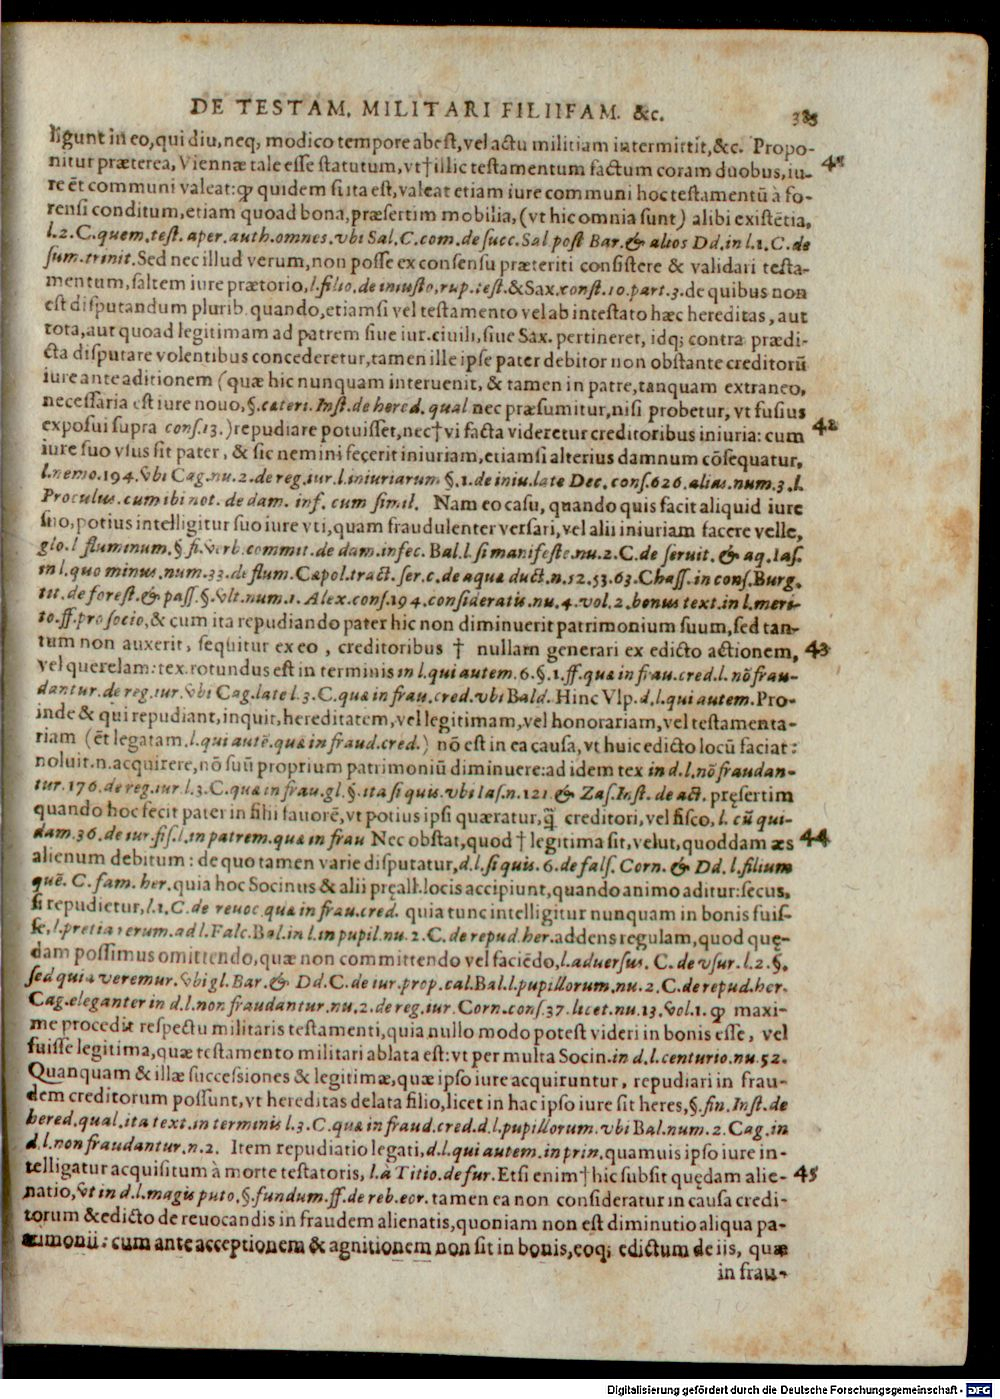 DE TESTAM. MILITARI FILIIFAM. &c. 385
ligunt in eo, qui diu, neq; modico tempore abest, vel actu militiam intermittit, &c. Propo-
nitur præterea, Viennæ tale esse statutum, vt † illic testamentum factum coram duobus, iu- 41
re ēt communi valeat: ꝙ quidem si ita est, valeat etiam iure communi hoc testamentū à fo-
rensi conditum, etiam quoad bona, præsertim mobilia, (vt hic omnia sunt) alibi existētia,
l. 2. C. quem. test. aper. auth. omnes. vbi Sal. C. com. de succ. Sal post Bar. & alios Dd. in l. 1. C. de
sum. trinit. Sed nec illud verum, non posse ex consensu præteriti consistere & validari testa-
mentum, saltem iure prætorio, l. filio. de iniusto, rup. test. & Sax. const. 10. part. 3. de quibus non
est disputandum plurib. quando, etiamsi vel testamento vel ab intestato hæc hereditas, aut
tota, aut quoad legitimam ad patrem siue iur. ciuili, siue Sax. pertineret, idq; contra prædi-
cta disputare volentibus concederetur, tamen ille ipse pater debitor non obstante creditorū
iure ante aditionem (quæ hic nunquam interuenit, & tamen in patre, tanquam extraneo,
necessaria est iure nouo, §. cæteri. Inst. de hered. qual nec præsumitur, nisi probetur, vt fusius
exposui supra cons. 13.) repudiare potuisset, nec † vi facta videretur creditoribus iniuria: cum 42
iure suo vsus sit pater, & sic nemini fecerit iniuriam, etiamsi alterius damnum cōsequatur,
l. nemo. 194. vbi Cag. nu. 2. de reg. iur. l. iniuriarum §. 1. de iniu. late Dec. cons. 626. alias. num. 3. l.
Proculus. cum ibi not. de dam. inf. cum simil. Nam eo casu, quando quis facit aliquid iure
suo, potius intelligitur suo iure vti, quam fraudulenter versari, vel alii iniuriam facere velle,
glo. l fluminum. §. fi. verb. commit. de dam. infec. Bal. l. si manifeste. nu. 2. C. de seruit. & aq. Ias.
in l. quo minus. num. 33. de flum. Cæpol. tract. ser. c. de aquæ duct. n. 52. 53. 63. Chass. in cons. Burg.
tit. de forest. & pass. §. vlt. num. 1. Alex. cons. 194. consideratis. nu. 4. vol. 2. bonus text. in l. meri-
to. ff. pro socio, & cum ita repudiando pater hic non diminuerit patrimonium suum, sed tan-
tum non auxerit, sequitur ex eo, creditoribus † nullam generari ex edicto actionem, 43
vel querelam: tex. rotundus est in terminis in l. qui autem. 6. §. 1. ff. quæ in frau. cred. l. nō frau-
dantur. de reg. iur. vbi Cag. late l. 3. C. quæ in frau. cred. vbi Bald. Hinc Vlp. d. l. qui autem. Pro-
inde & qui repudiant, inquit, hereditatem, vel legitimam, vel honorariam, vel testamenta-
riam (ēt legatam. l. qui autē. quæ in fraud. cred.) nō est in ea causa, vt huic edicto locū faciat:
noluit. n. acquirere, nō suū proprium patrimoniū diminuere: ad idem tex in d. l. nō fraudan-
tur. 176. de reg. iur l. 3. C. quæ in frau. gl. §. ita si quis. vbi Ias. n. 121 & Zas. Inst. de act. pręsertim
quando hoc fecit pater in filii fauorē, vt potius ipsi quæratur, q̃ creditori, vel fisco, l. cū qui-
dam. 36. de iur. fis. l. in patrem. quæ in frau Nec obstat, quod † legitima sit, velut, quoddam æs 44
alienum debitum: de quo tamen varie disputatur, d. l. si quis. 6. de fals. Corn. & Dd. l. filium
quē. C. fam. her. quia hoc Socinus & alii pręall. locis accipiunt, quando animo aditur: secus,
si repudietur, l. 1. C. de reuoc quæ in frau. cred. quia tunc intelligitur nunquam in bonis fuis-
se, l. pretia rerum. ad l. Falc. Bal. in l. in pupil. nu. 2. C. de repud. her. addens regulam, quod quę-
dam possimus omittendo, quæ non committendo vel faciēdo, l. aduersus. C. de vsur. l. 2. §.
sed quia veremur. vbi gl. Bar. & Dd. C. de iur. prop. cal. Bal. l. pupillorum. nu. 2. C. de repud. her.
Cag. eleganter in d. l. non fraudantur. nu. 2. de reg. iur. Corn. cons. 37. licet. nu. 13. vol. 1. ꝙ maxi-
me procedit respectu militaris testamenti, quia nullo modo potest videri in bonis esse, vel
fuisse legitima, quæ testamento militari ablata est: vt per multa Socin. in d. l. centurio. nu. 52.
Quanquam & illæ successiones & legitimæ, quæ ipso iure acquiruntur, repudiari in frau-
dem creditorum possunt, vt hereditas delata filio, licet in hac ipso iure sit heres, §. fin. Inst. de
hered. qual. ita text. in terminis l. 3. C. quæ in fraud. cred. d. l. pupillorum. vbi Bal. num. 2. Cag. in
d. l. non fraudantur. n. 2. Item repudiatio legati, d. l. qui autem. in prin. quamuis ipso iure in-
telligatur acquisitum à morte testatoris, l. à Titio. de fur. Etsi enim † hic subsit quędam alie- 45
natio, vt in d. l. magis puto, §. fundum. ff. de reb. eor. tamen ea non consideratur in causa credi-
torum & edicto de reuocandis in fraudem alienatis, quoniam non est diminutio aliqua pa-
trimonii: cum ante acceptionem & agnitionem non sit in bonis, eoq; edictum de iis, quæ
in frau-
Digitalisierung gefördert durch die Deutsche Forschungsgemeinschaft - DFG